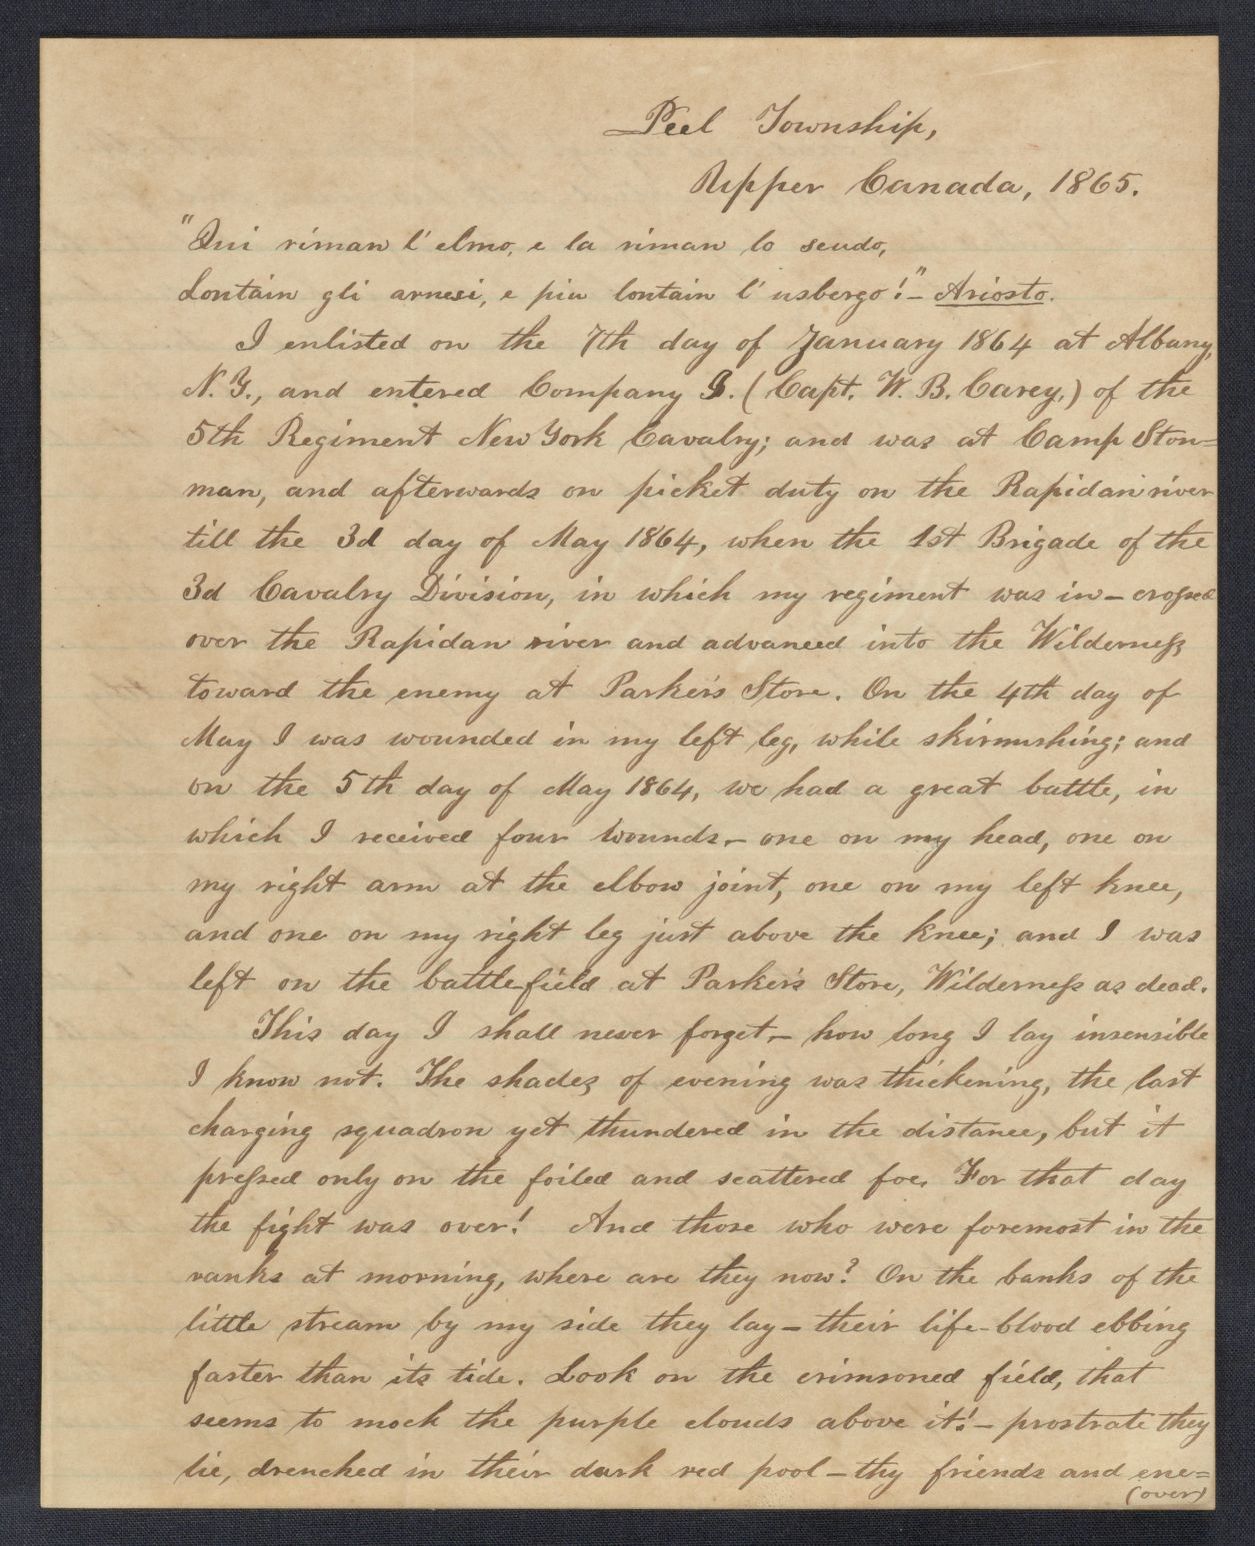 Peel Township,
Upper Canada, 1865.
"Qui riman l'elmo, e la riman lo scudo,
Lontain gli arnesi, e piu lontain l'usbergo!"- Ariosto.
I enlisted on the 7th day of January 1864 at Albany,
N.Y., and entered Company I. (Capt. W. B. Carey,) of the
5th Regiment New York Cavalry; and was at Camp Ston=
man, and afterwards on picket duty on the Rapidan river
till the 3d day of May 1864, when the 1st Brigade of the
3d Cavalry Division, in which my regiment was in- crossed
over the Rapidan river and advanced into the Wilderness
toward the enemy at Parker's Store. On the 4th day of
May I was wounded in my left leg, while skirmishing; and
on the 5th day of May 1864, we had a great battle, in
which I received four wounds,- one on my head, one on
my right arm at the elbow joint, one on my left knee,
and one on my right leg just above the knee; and I was
left on the battle-field at Parker's Store, Wilderness as dead.
This day I shall never forget,- how long I lay insensible
I know not. The shades of evening was thickening, the last
charging squadron yet thundered in the distance, but it
pressed only on the foiled and scattered foe. For that day
the fight was over! And those who were foremost in the
ranks at morning, where are they now? On the banks of the
little stream by my side they lay- their life-blood ebbing
faster than its tide. Look on the crimsoned field, that
seems to mock the purple clouds above it!- prostrate they
lie, drenched in their dark red pool- thy friends and ene=
(over)